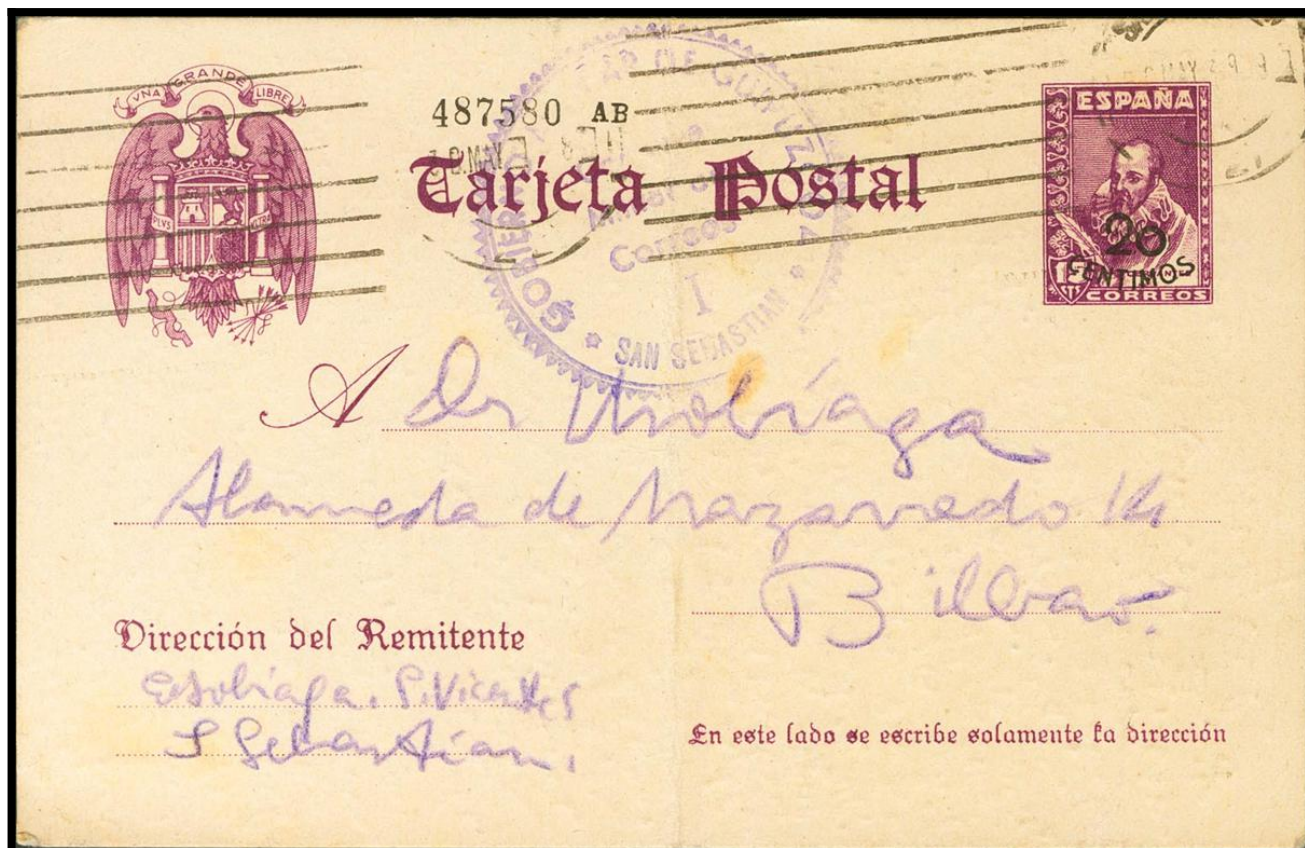 VNA GRANDE LIBRE
PLVS VLTRA
487580 AB
Tarjeta Postal
GOBIERNO MILITAR DE GUIPUZCOA
Correos
I
* SAN SEBASTIAN *
ESPAÑA
20
CENTIMOS
CORREOS
A Dr
Alameda de Mazarredo 14
Bilbao.
Dirección del Remitente
S Sebastian.
En este lado se escribe solamente ka dirección